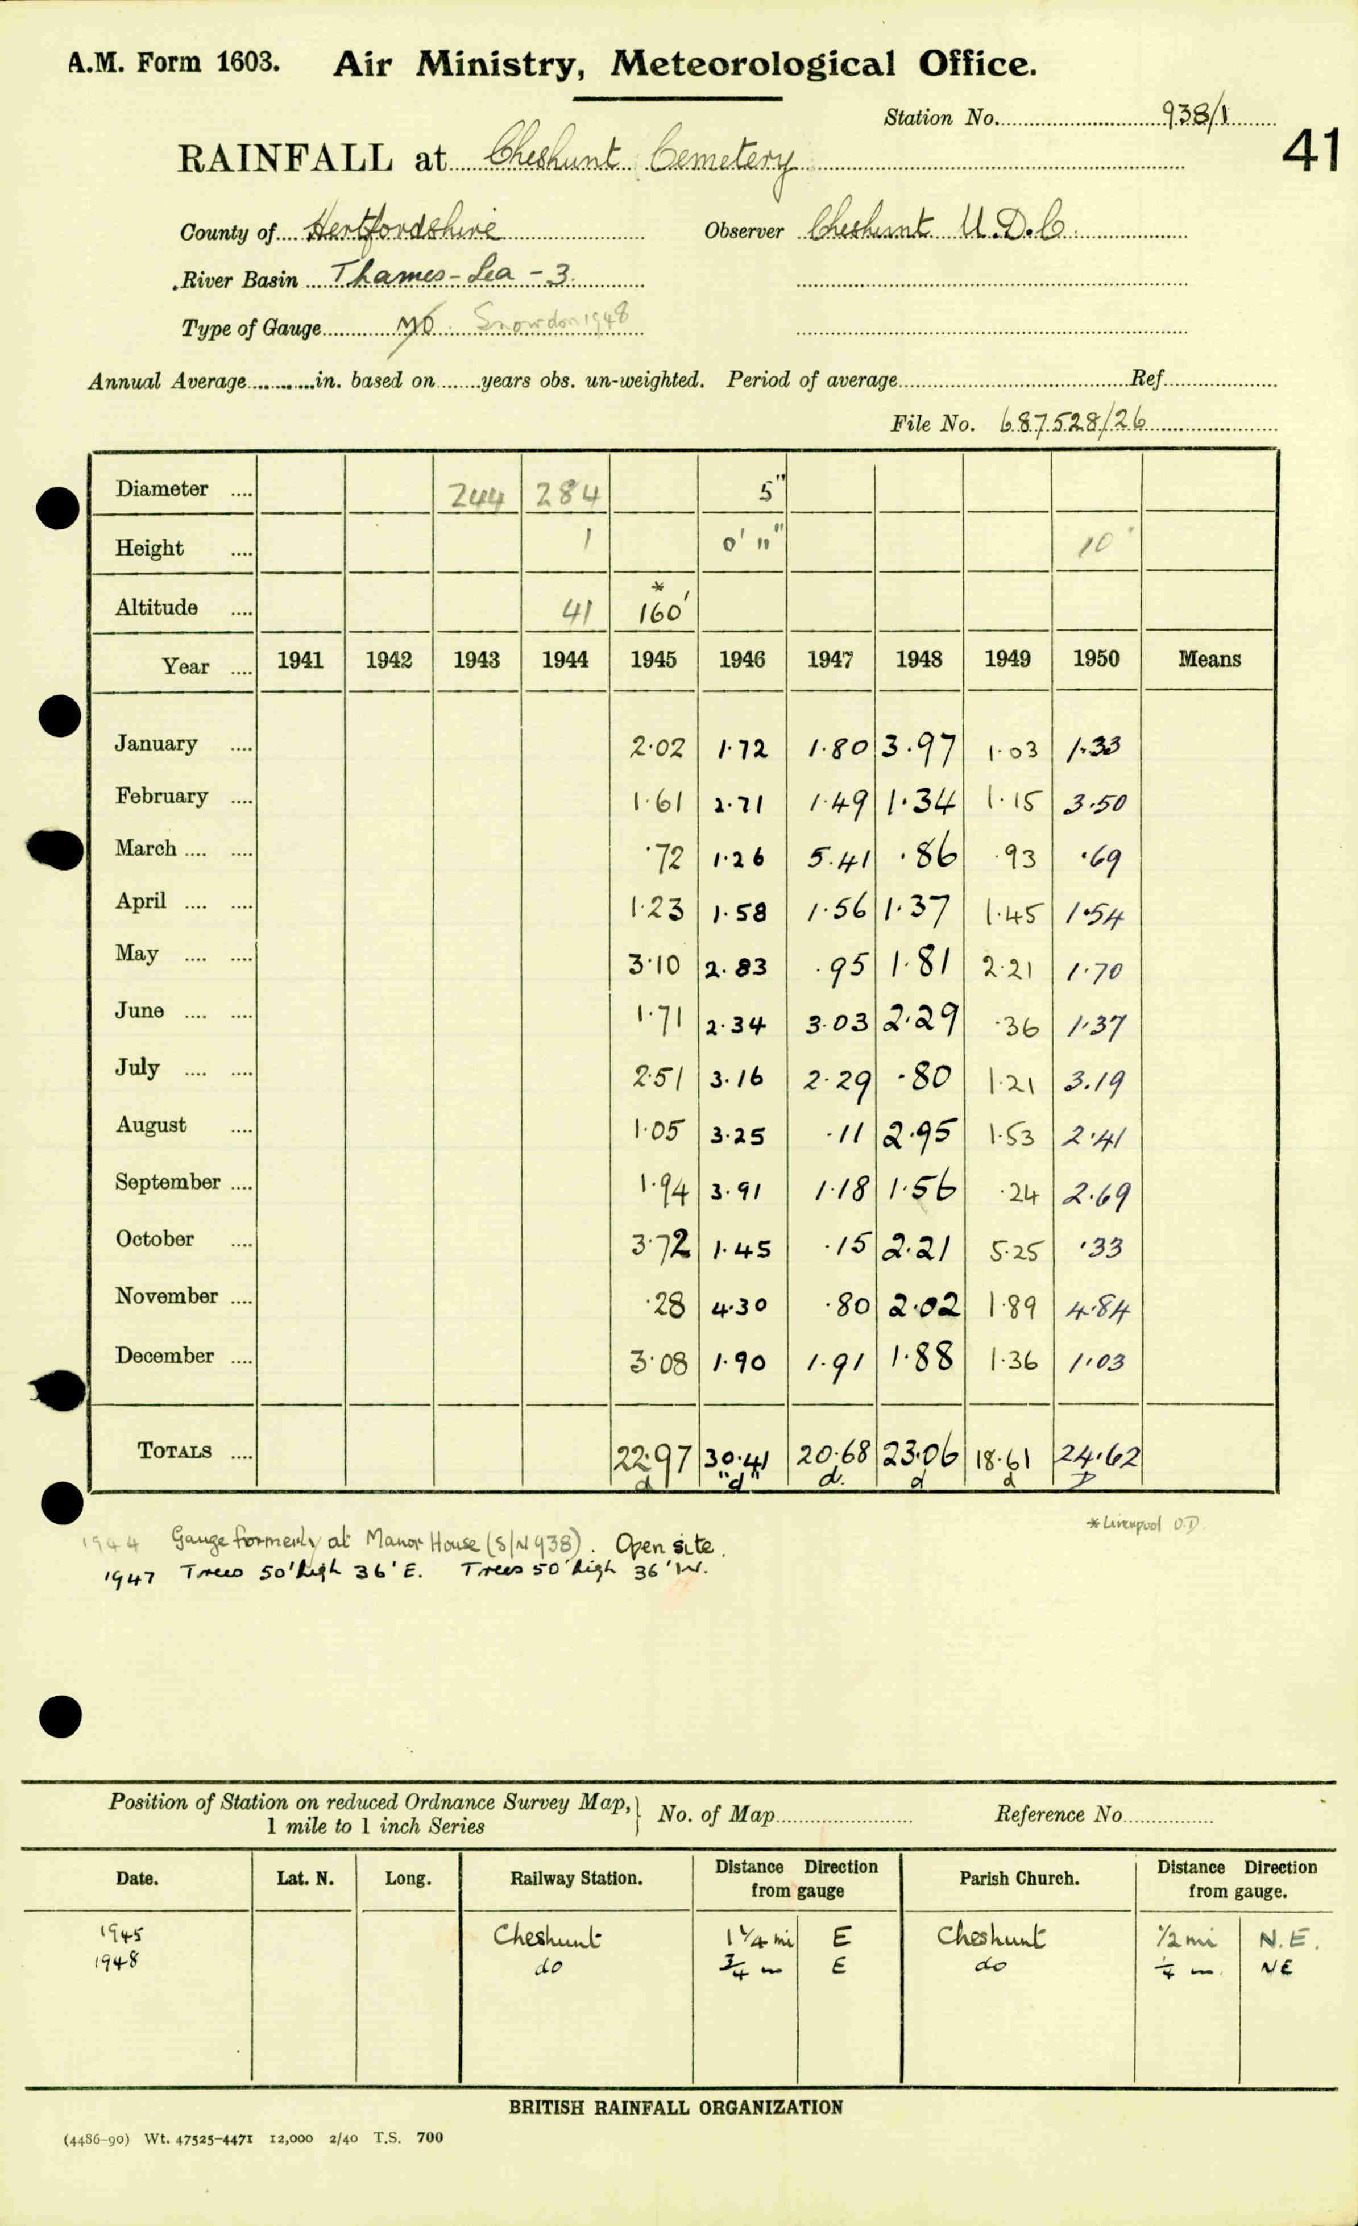 A.M. Form 1603. Air Ministry, Meteorological Office.
Station No. 938/1
41
RAINFALL at Cheshunt Cemetery
County of Hertfordshire Observer Cheshunt U.D.C.
River Basin Thames-Lea-3
Type of Gauge MO Snowdon 1948
Annual Average in. based on years obs. un-weighted. Period of average Ref.
File No. 687528/26
Diameter 244 284 5"
Height 1 0' 11" 10"
Altitude 41 160' *
Year 1941 1942 1943 1944 1945 1946 1947 1948 1949 1950 Means
January 2.02 1.72 1.80 3.97 1.03 1.33
February 1.61 2.71 1.49 1.34 1.15 3.50
March .72 1.26 5.41 .86 .93 .69
April 1.23 1.58 1.56 1.37 1.45 1.54
May 3.10 2.83 .95 1.81 2.21 1.70
June 1.71 2.34 3.03 2.29 .36 1.37
July 2.51 3.16 2.29 .80 1.21 3.19
August 1.05 3.25 .11 2.95 1.53 2.41
September 1.94 3.91 1.18 1.56 .24 2.69
October 3.72 1.45 .15 2.21 5.25 .33
November .28 4.30 .80 2.02 1.89 4.84
December 3.08 1.90 1.91 1.88 1.36 1.03
TOTALS 22.97 30.41 20.68 23.06 18.61 24.62
d "d" d. d d D
* Liverpool O.D.
1944 Gauge formerly at Manor House (S/N 938). Open site.
1947 Trees 50' high 36' E. Trees 50' high 36' W.
Position of Station on reduced Ordnance Survey Map, 1 mile to 1 inch Series } No. of Map Reference No.
Date. Lat. N. Long. Railway Station. Distance Direction from gauge Parish Church. Distance Direction from gauge.
1945 Cheshunt 1 1/4 mi E Cheshunt 1/2 mi N.E.
1948 do 3/4 m E do 1/4 m. NE
BRITISH RAINFALL ORGANIZATION
(4486-90) Wt. 47525-4471 12,000 2/40 T.S. 700